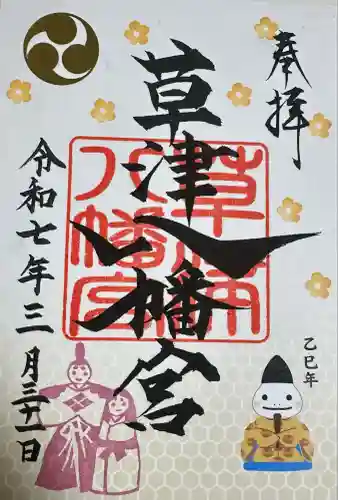 奉拝
草津八幡宮
草津八幡宮
令和七年三月三十一日
乙巳年